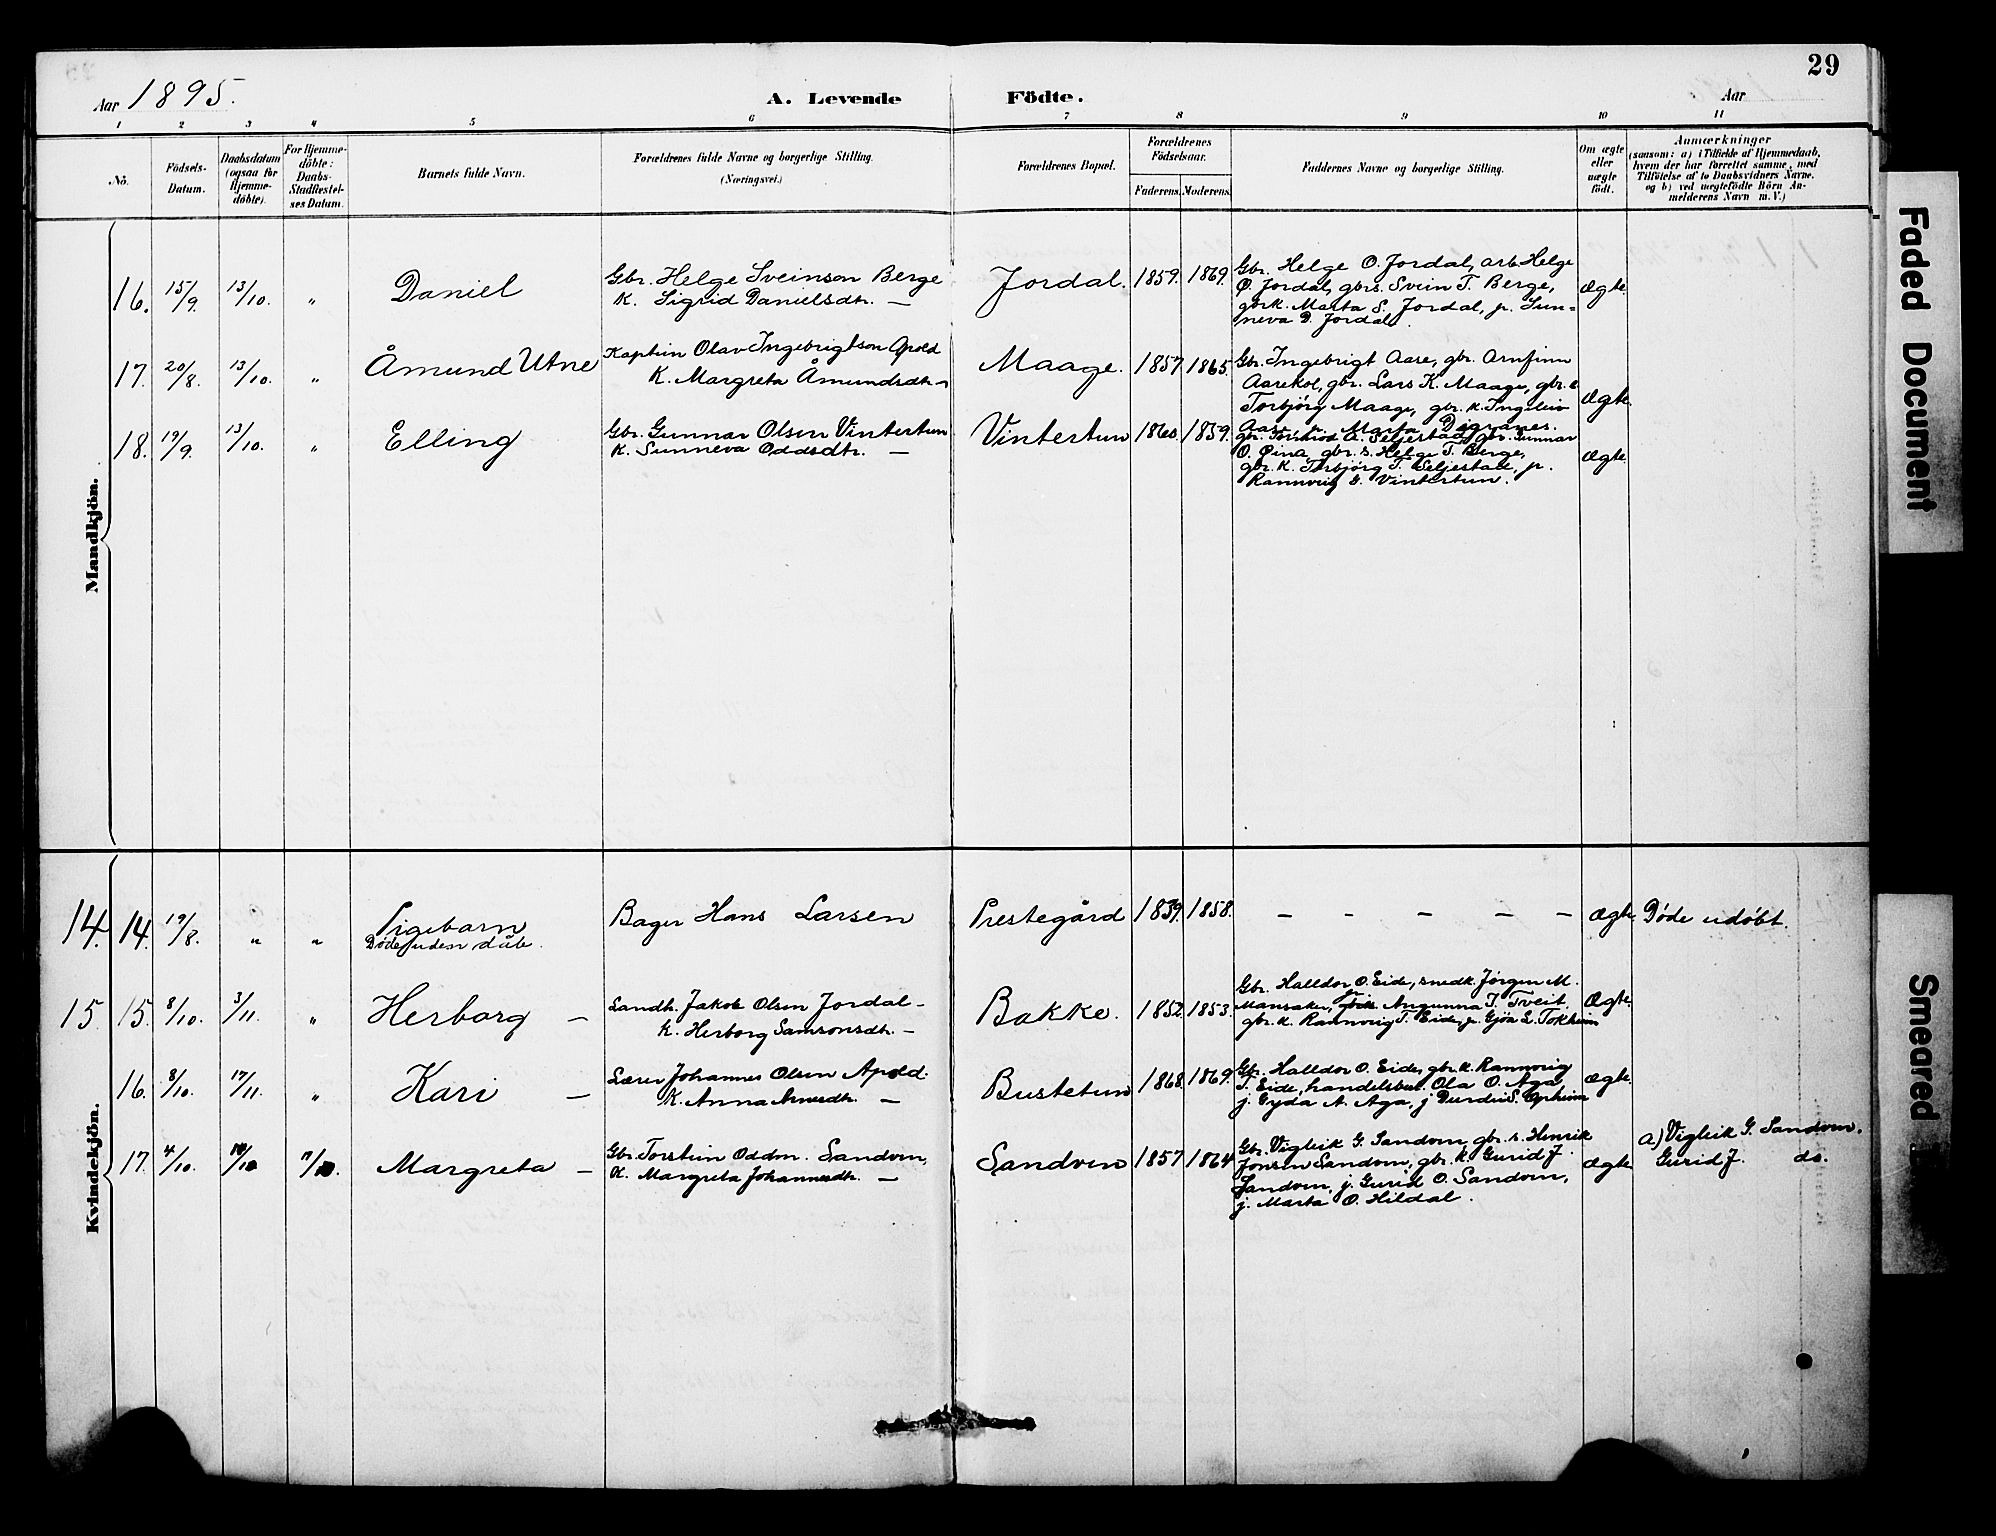 29
Aar 1895.
A. Levende Födte.
Aar
1 2 3 4 5 6 7 8 9 10 11
No.
Födsels-
Datum.
Daabsdatum
(ogsaa for
Hjemme-
døbte).
For Hjemme-
døbte:
Daabs-
Stadfæstel-
ses Datum.
Barnets fulde Navn.
Forældrenes fulde Navne og borgerlige Stilling.
(Næringsvei.)
Forældrenes Bopæl.
Forældrenes
Födselsaar.
Faderens. Moderens.
Faddernes Navne og borgerlige Stilling.
Om ægte
eller
uægte
født.
Anmærkninger
(saasom: a) i Tilfælde af Hjemmedaab,
hvem der har forrettet samme, med
Tilføielse af to Daabsvidners Navne,
og b) ved uægtefødte Börn An-
melderens Navn m. V.)
Mandkjön.
16. 15/9. 13/10. „ Daniel
Gbr. Helge Sveinson Berge
K. Sigrid Danielsdtr. —
Jordal. 1859. 1869.
Gbr. Helge O. Jordal, arb. Helge
O. Jordal, gbrs. Svein T. Berge,
gbrk. Marta S. Jordal, p. Sun=
neva D. Jordal.
ægte.
17. 20/8. 13/10. „ Åmund Utne
Kaptein Olav Ingebrigtson Apold
K. Margreta Åmundsdtr. —
Maage. 1857. 1865.
Gbr. Ingebrigt Aase, gbr. Arnfinn
Aarekol, gbr. Lars K. Maage, gbr. e
Torbjörg Maage, gbr. k. Ingeleiv
Aase, p. Marta Digranes.
ægte.
18. 19/9. 13/10. „ Elling
Gbr. Gunnar Olsen Vintertun
K. Sunneva Oddsdtr. —
Vintertun 1860. 1859.
gbr. A. Seljestad, gbr. Gunnar
O. gbr. s. Helge T. Berge,
gbr. K. Torbjörg T. Seljestad, p.
Rannveig G. Vintertun.
ægte.
Kvindekjön.
14. 14. 19/8. „ „ Pigebarn
Døde uden dåb.
Bager Hans Larsen
Prestegård 1839. 1858. — — — — — ægte. Døde udøbt.
15 15. 8/10. 3/11. „ Herborg —
Landh. Jakob Olsen Jordal —
K. Herborg Samsonsdtr. —
Bakke. 1852. 1853.
Gbr. Halldor O. Eide, snedk. Jørgen M.
Mansaker, Angunna J. Tveit,
gbr. k. Rannveig T. Eide, p. Gjöa L. Tokheim
ægte.
16. 8/10. 17/11. „ Kari —
Lærer Johannes Olsen Apold.
K. Anna —
Bustetun 1868. 1869.
Gbr. Halldor O. Eide, gbr. k. Rannveig
T. Eide, handelsbet. Ola O. Aga,
j. Gyda A. Aga, j. S. Opheim
ægte.
17. 4/10. Margreta —
Gbr. Torstein Oddm. Sandven,
K. Margreta Johannesdtr. —
Sandven 1857 1864
Gbr. Vigleik G. Sandven, gbr. s. Henrik
Jonsen Sandven, gbr. k. Gurid J.
Sandven, j. Gurid O. Sandven,
j. Marta O. Hildal.
ægte
a) Vigleik G. Sandven.
Gurid J. do.
Faded Document
Smeared